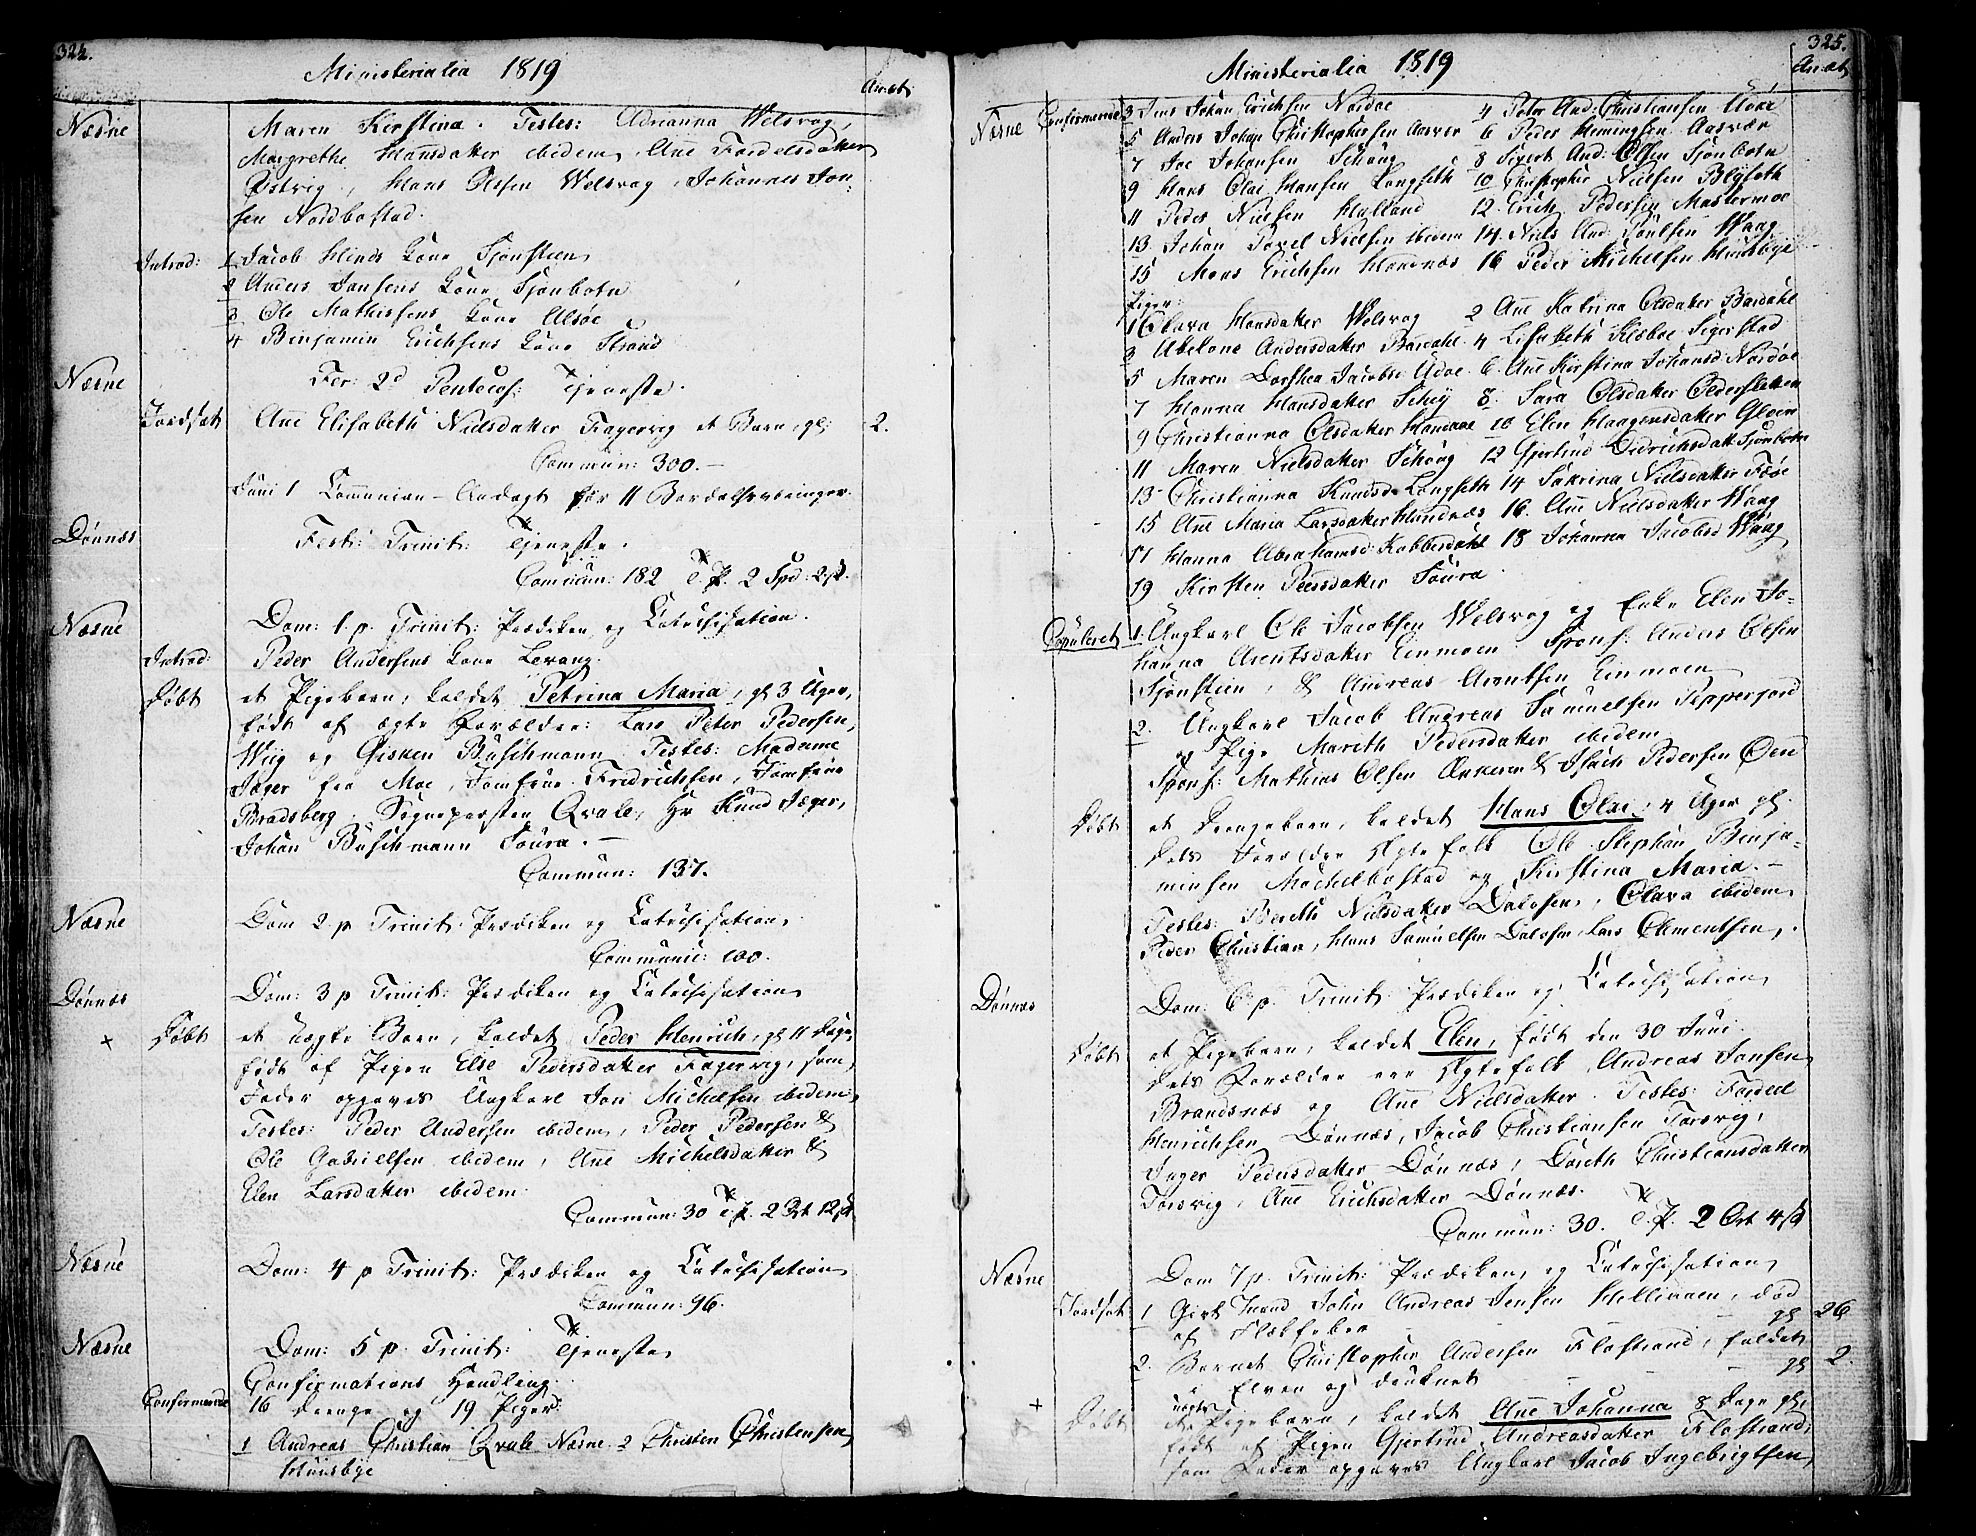 324.
Ministerialia 1819
An: æt:
Næsne
Maren Kirstina. Testes: Adrianna Welsvog,
Margrethe Hansdatter ibidem, Ane Fordelsdatter
Østvig, Hans Olsen Welsvog, Johannes Jon-
sen Nordbostad.
Introd: 1 Jacob Hinds Kone Sjonsteen
2 Anders Jonsens Kone Sjonbotn
3 Ole Mathisens Kone Alsøe
4 Benjamin Erichsens Kone Strand
Næsne
Fer: 2d Pentecos: Tjeneste.
Jordfæt Ane Elisabeth Nielsdatter Fagervig et Barn, gl: 2.
Commun: 300.
Juni 1 Communion-Andagt for 11
Dønnæs
Fest: Trinit: Tjeneste.
Commun: 182 T. P. 2 Spd: 2 s.
Næsne
Dom: 1. p. Trinit: Prædiken og Catechisation.
Introd: Peder Andersens Kone Levang.
Døbt et Pigebarn, kaldet Petrina Maria, gl 3 Uger,
født af ægte Forældre: Lars Peter Pedersen,
Wiig og Gisken Buschmann. Testes: Madame
Jæger fra Moe, Jomfrue Fredrichsen, Jomfrue
Bradsberg, Sognepræsten Qvale, Hr Knud Jæger,
Johan Buschmann Soura.
Commun: 137.
Næsne
Dom 2. p Trinit: Prædiken og Catechisation,
Communic: 100.
Dønnæs
Dom: 3 p Trinit: Prædiken og Catechisation
+ Døbt et uægte Barn, kaldet Peder Henrich, gl 11 Dage,
født af Pigen Else Pedersdatter Fagervig, som
Fader opgaves Ungkarl Jon Michelsen ibidem.
Testes: Peder Andersen ibidem, Peder Pedersen &
Ole Gabrielsen ibidem, Ane Michelsdatter &
Elen Larsdatter ibidem.
Commun: 30 T. P. 2 Ort 12 s.
Næsne
Dom: 4 p Trinit: Prædiken og Catechisation
Commun: 96.
Næsne
Dom: 5 p. Trinit: Tjeneste
Confirmations Handling.
Confirmerede 16 Drenge og 19 Piger:
1 Andreas Christian Qvale Næsne. 2 Christen Christensen
Huusbye
325.
Ministerialia 1819
An: æt
Næsne Confirmerede 3 Jens Johan Erichsen Nordøe 4 Peter And: Christiansen Udøe
5 Anders Johan Christophersen Aasvær 6 Peder Hemingsen Aasvær
7 Joe Johansen Schoug 8 Sivert And: Olsen Sjonbotn
9 Hans Olai Hansen Langseth 10 Christopher Nielsen Blyseth
11 Peder Nielsen Hylland 12. Erich Pedersen Mastermoe
13 Johan Povel Nielsen ibidem 14. Niels And. Poulsen Waag
15 Mons Erichsen Handnæs 16 Peder Michelsen Huusbye
Piger:
1 Olava Hansdatter Welsvog 2 Ane Katrina Olsdatter Bardahl
3 Abelone Andersdatter Bardahl 4 Lisabeth Kilsboe Sigerstad
5 Maren Dorthea Jacobsd: Udøe 6. Ane Kirstina Johansd: Nordøe
7 Hanna Hansdatter Schey 8. Sara Olsdatter Oldersletten
9 Christianna Olsdatter Handnæs 10 Elen Haagensdatter Glein
11 Maren Nielsdatter Schoug 12 Gjertrud Didrichsdatt: Sjonbotn
13 Christianna Knudsd: Langseth 14 Sakrina Nielsdatter Fæøe
15 Ane Maria Larsdatter Handnæs 16. Ane Nielsdatter Waag
17 Hanna Abrahamsd: Kobberdahl 18 Johanna Jacobsd Waag
19 Kirsten Peersdatter Soura.
Copuleret 1. Ungkarl Ole Jacobsen Welsvog og Enke Elen Jo-
hanna Arentsdatter Einmoen. Spons: Anders Olsen
Sjonstein, & Andreas Arentsen Einmoen
2. Ungkarl Jacob Andreas Samuelsen Pepperjord
og Pige Marith Pedersdatter ibidem
Spons: Mathias Olsen & Isach Pedersen Øen
Døbt et Drengebarn, kaldet Hans Olai, 4 Uger gl.
dets Forældre Ægtefolk Ole Stephan Benja-
minsen Mochelbostad og Kirstina Maria.
Testes: Bereth Nielsdatter Dalosen, Olava ibidem,
Peder Christian, Hans Samuelsen Dalosen, Lars Clementsen.
Dønnæs
Dom: 6 p. Trinit: Prædiken og Catechisation
Døbt et Pigebarn, kaldet Elen, født den 30 Juni.
dets Forældre ere Ægtefolk Andreas Jonsen
Brandsnæs og Ane Nielsdatter. Testes: Fordel
Henrichsen Dønnæs, Jacob Christiansen Torsvig,
Inger Pedersdatter Dønnæs, Doreth Christiansdatter
Torsvig, Ane Erichsdatter Dønnæs.
Commun: 30. T. P. 2 Ort 4 s
Næsne
Dom 7 p. Trinit: Prædiken og Catechisation
Jordfæt: 1 Gift Mand John Andreas Jensen Hellinaen, død
af gl 26
2. Barnet Christopher Andersen Flostrand, faldet
i Elven og druknet gl 2.
uægte
+ Døbt et Pigebarn, kaldet Ane Johanna 8 Dage gl.
født af Pigen Gjertrud Andreasdatter Flostrand,
som Fader opgaves Ungkarl Jacob Ingebrigtsen,